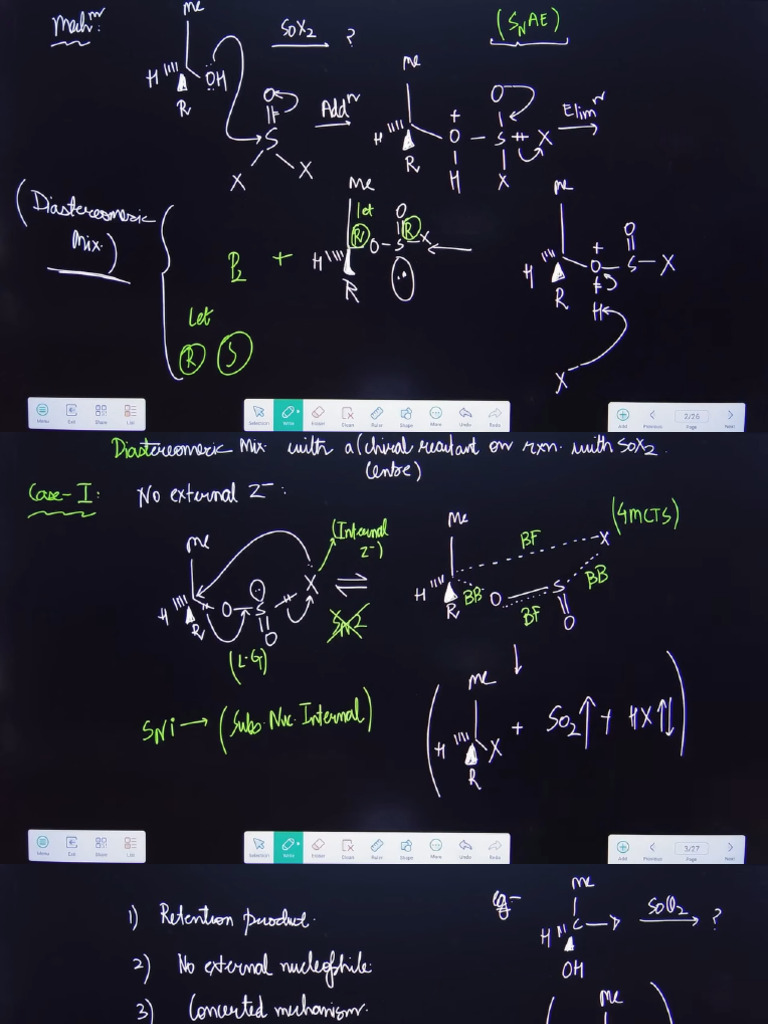 Mechⁿ:
Me
H
OH
R
SOX2
?
(SNAE)
O
S
X
X
Addⁿ
Me
H
R
+
O
H
O
S
X
X
Elimⁿ
(Diastereomeric
Mix.)
P2 +
Let
R S
Me
let
R
H
R
O
S
O
R
X
Me
H
R
+
O
S
O
X
H
X
Menu
Exit
Share
Lib
Selection
Write
Eraser
Clean
Ruler
Shape
More
Undo
Redo
Add
Previous
2/26
Page
Next
Diastereomeric Mix. with a (chiral reactant on rxn. with SOX2
Centre)
Case-I:
No external Z⁻:
Me
H
R
O
S
O
X
(Internal
Z⁻)
(L.G)
⇌
SN2
Me
H
R
BF
X
(4MCTS)
BB
O
S
BB
BF
O
SNi → (Subs. Nuc. Internal)
Me
H
X
R
+ SO2↑ + HX↑
Menu
Exit
Share
Lib
Selection
Write
Eraser
Clean
Ruler
Shape
More
Undo
Redo
Add
Previous
3/27
Page
Next
1) Retention product.
2) No external nucleophile
3) Concerted mechanism.
eg-
Me
H
C
D
OH
SOCl2
?
Me